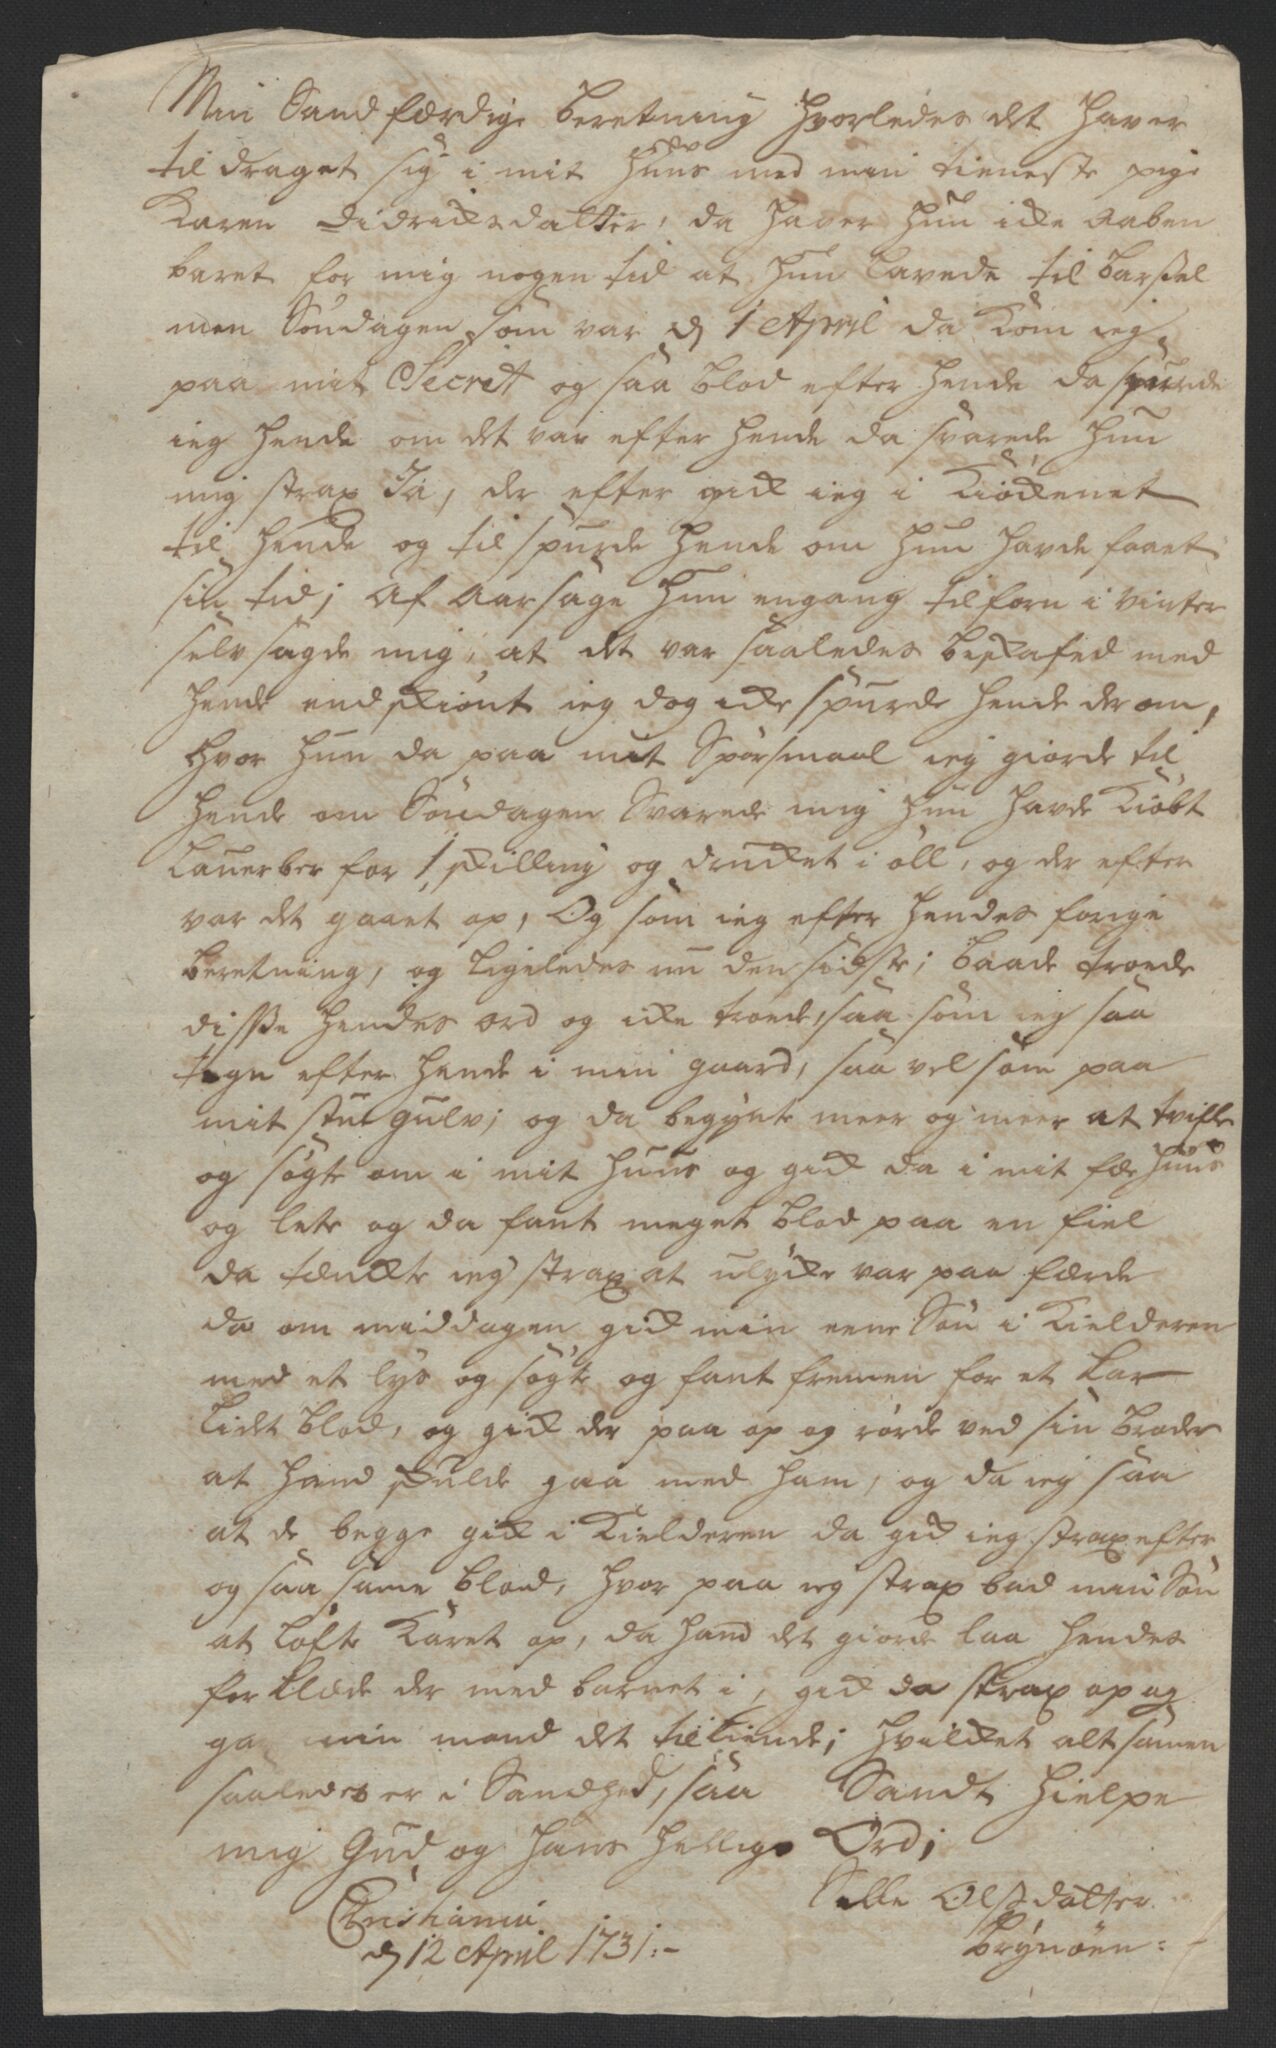 Min Sandfærdige beretning hvorledes det haver
til draget sig i mit huus med min tieneste pige
Karen Didricksdatter, da haver hun icke aaben
baret for mig nogen tid at hun lavede til barssel
men Søndagen som var d 1 April da kom ieg
paa mit Secrett og saa blod efter hende da spurde
ieg hende om det var efter hende da svarede hun
mig strax Ja, der efter gick ieg i Kiøckenet
til hende og til spurde hende om hun havde faaet
sin tid; af aarsage hun engang tilforn i vinter
selv sagde mig, at det var saaledes beskafed med
hende endskiønt ieg dog icke spurde hende der om,
hvor hun da paa mit Spørsmaal ieg giorde til
hende om Søndagen Svarede mig hun havde kiøbt
Lauerber for 1 skilling og drucket i øll, og der efter
var det gaaet op, Og som ieg efter hendes forige
beretning, og ligeledes nu den sidste; baade troede
disse hendes ord og icke troede, saa som ieg saa
tegn efter hende i min gaard, saa vel som paa
mit stue gulv; og da begynte meer og meer at tvifle
og søgte om i mit huus og gick da i mit fæ huus
og lete og da fant meget blod paa en fiel
da tænckte ieg strax at ulycke var paa færde
da om middagen gick min eene Søn i Kielderen
med et lys og søgte og fant fremen for et kar
lidet blod, og gick der paa op og rørde ved sin broder
at hand skulde gaa med ham, og da ieg saa
at de begge gick i Kielderen da gick ieg strax efter
og saa same blod, hvor paa ieg strax bad min Søn
at løfte Karet op, da hand det giorde laa hendes
forklæde der med barnet i, gick da strax op og
ga min mand det tilkiende; hvilcket alt samen
saaledes er i Sandhed, saa Sandt hielpe
mig Gud og hans hellige Ord;
Sille Olsdatter
Christiania
d 12 April 1731:-
Brynøen